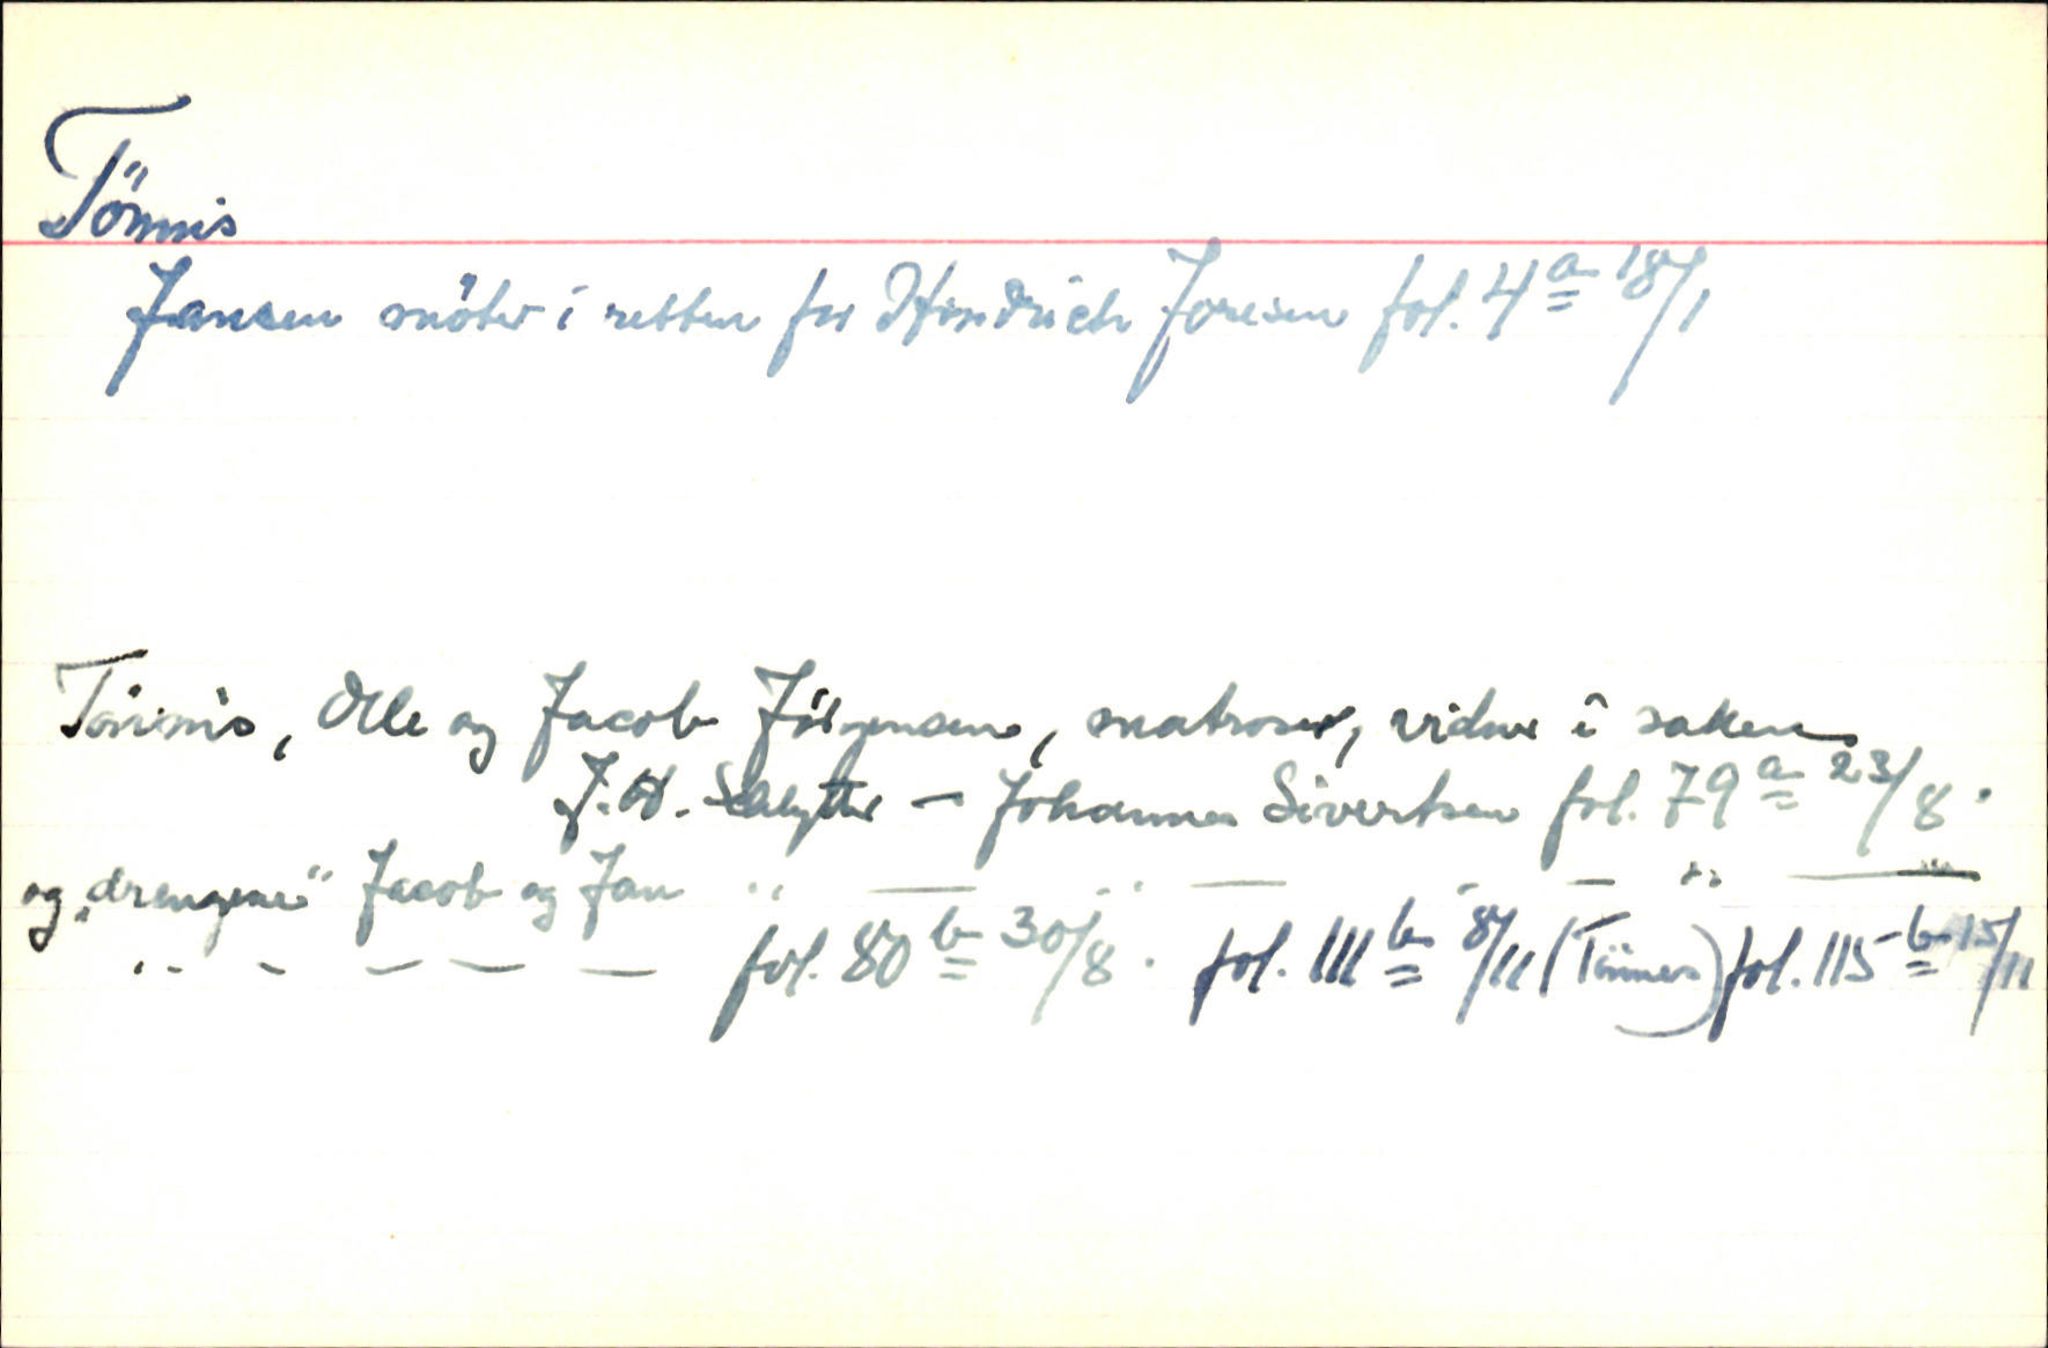 Tönnis
Jansen möter i retten for Hindrich Joresen fol. 4a 18/1
Tönnis, Olle og Jacob Jörgensen, matroser, vidner i saken
J. H. Schlytter — Johannes Sivertsen fol. 79a 23/8.
og „drengene" Jacob og Jan " — " — " — " —
" - — — — fol. 80b 30/8. fol. 111b 8/11 (Tönnes) fol. 115b 15/11